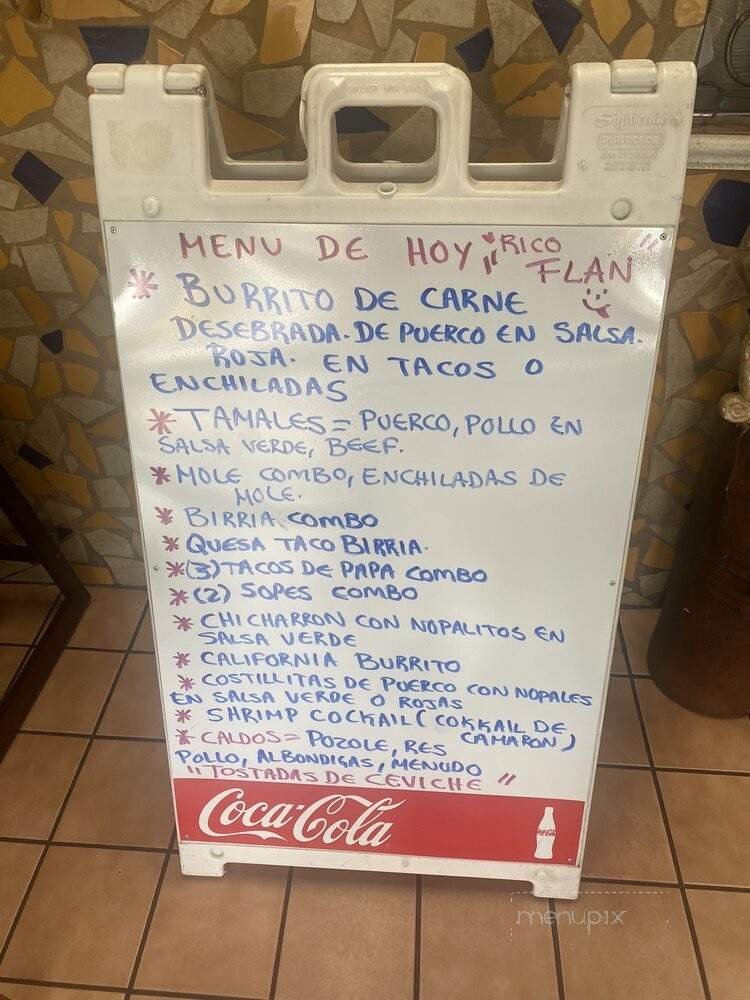 Signicade
PLASTICADE
MENU DE HOY "RICO
FLAN"
* BURRITO DE CARNE
DESEBRADA. DE PUERCO EN SALSA.
ROJA. EN TACOS O
ENCHILADAS
* TAMALES = PUERCO, POLLO EN
SALSA VERDE, BEEF.
* MOLE COMBO, ENCHILADAS DE
MOLE.
* BIRRIA COMBO
* QUESA TACO BIRRIA.
* (3) TACOS DE PAPA COMBO
* (2) SOPES COMBO
* CHICHARRON CON NOPALITOS EN
SALSA VERDE
* CALIFORNIA BURRITO
* COSTILLITAS DE PUERCO CON NOPALES
EN SALSA VERDE O ROJAS
* SHRIMP COCKAIL (COKKAIL DE
CAMARON)
* CALDOS = POZOLE, RES
POLLO, ALBONDIGAS, MENUDO
"TOSTADAS DE CEVICHE"
Coca-Cola
menupix